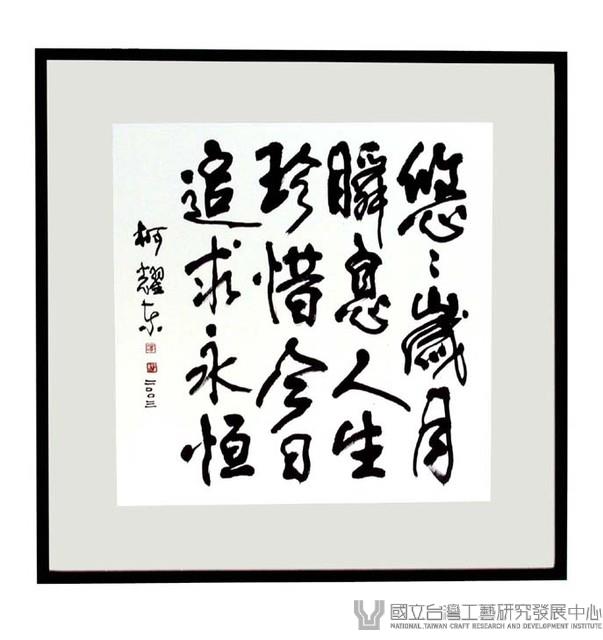 悠〻歲月
瞬息人生
珍惜今日
追求永恒
柯耀东
二〇〇三
國立台灣工藝研究發展中心
NATIONAL TAIWAN CRAFT RESEARCH AND DEVELOPMENT INSTITUTE